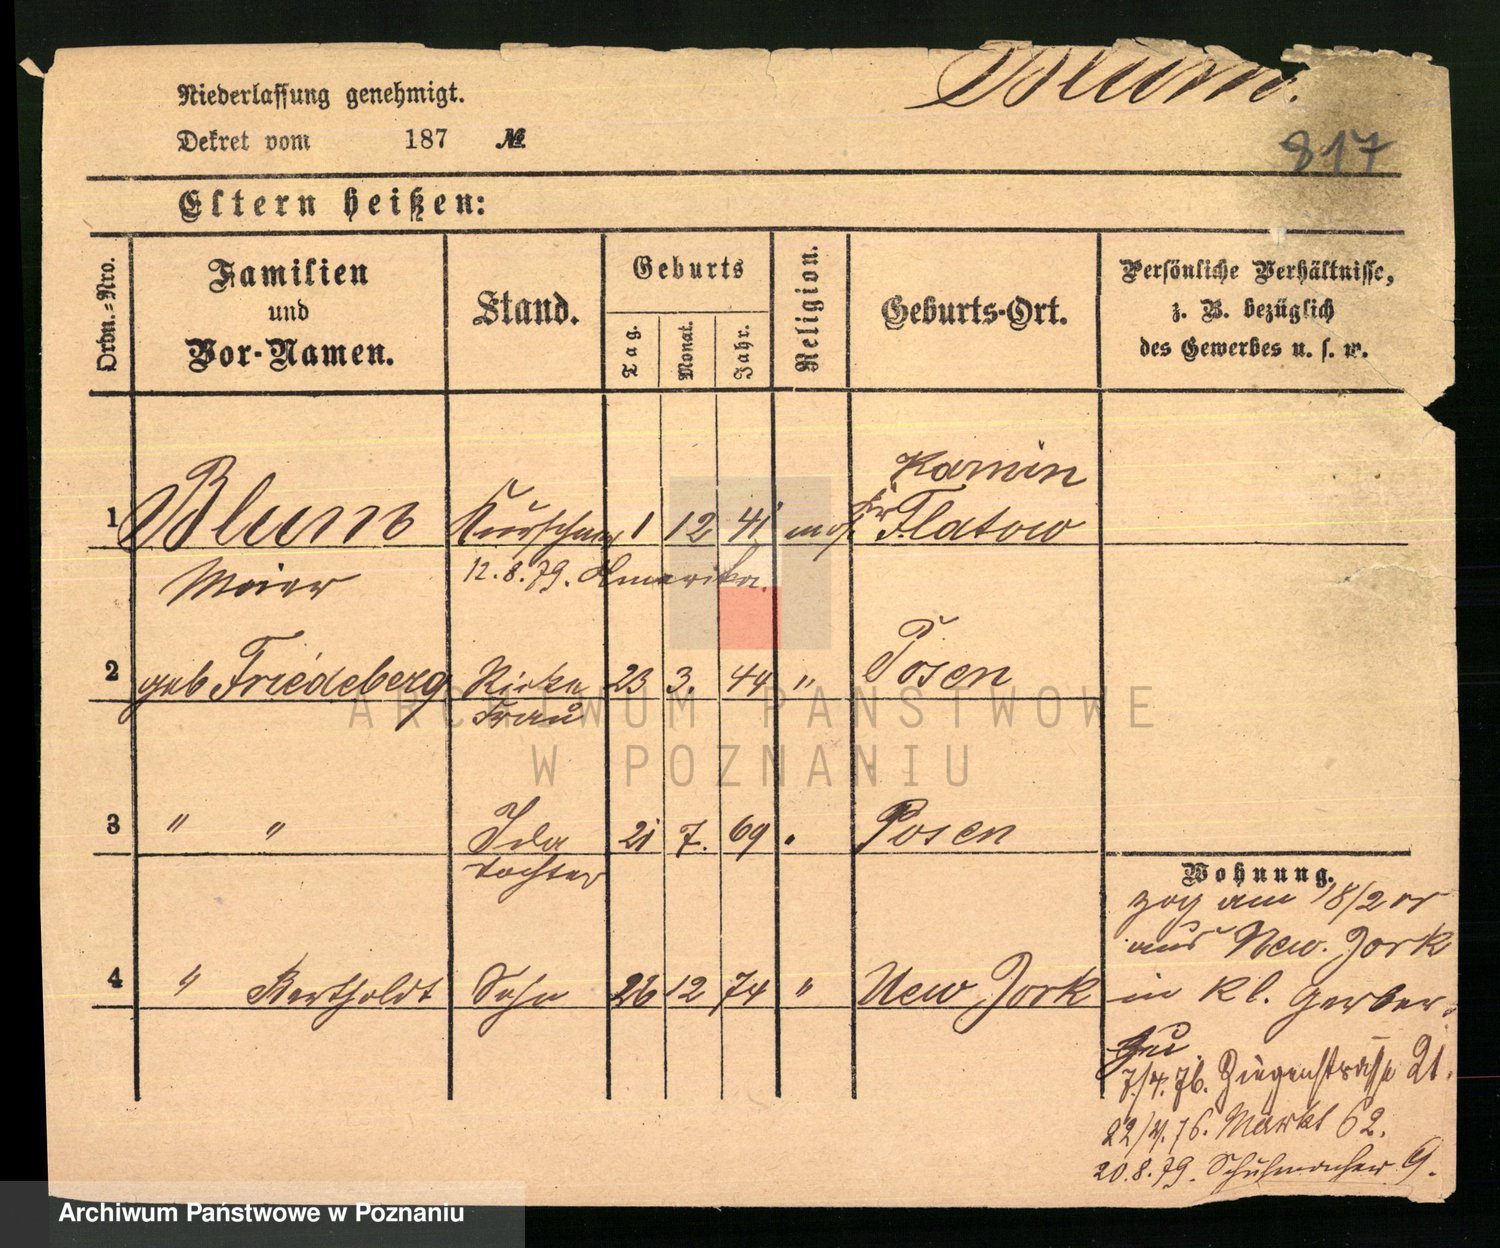 Niederlassung genehmigt.
Dekret vom 187 №
Blum.
817
Eltern heißen:
Ordn.-Nro.
Familien
und
Vor-Namen.
Stand.
Geburts
Tag.
Monat.
Jahr.
Religion.
Geburts-Ort.
Persönliche Verhältnisse,
z. B. bezüglich
des Gewerbes u. s. w.
Kamin
1 Blum Kürschner 1 12 41 mos. Kr Flatow
Meier 12.8.79. Amerika.
2 geb Friedeberg Rieke 23 3. 44 " Posen
Frau
ARCHIWUM PAŃSTWOWE
W POZNANIU
3 " " Ida 21 7. 69 " Posen
Tochter
4 " Bertholdt Sohn 26 12 74 " New Jork
Wohnung.
zog am 18/2 cr
aus New. Jork
in Kl. Gerber.
7/4.76. Ziegenstrasse 21.
22/4.76. Markt 62.
20.8.79. Schuhmacher 9.
Archiwum Państwowe w Poznaniu